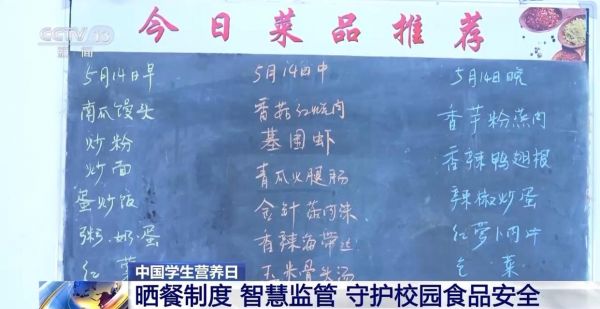 CCTV 13
新闻
今日菜品推荐
5月14日早 5月14日中 5月14日晚
南瓜馒头 香菇红烧肉 香芋粉蒸肉
炒粉 基围虾 香辣鸭翅根
炒面 青瓜火腿肠 辣椒炒蛋
蛋炒饭 金针蒸肉沫 红萝卜肉片
粥.奶.蛋 香辣海带丝 生菜
红 玉米骨头汤
中国学生营养日
晒餐制度 智慧监管 守护校园食品安全